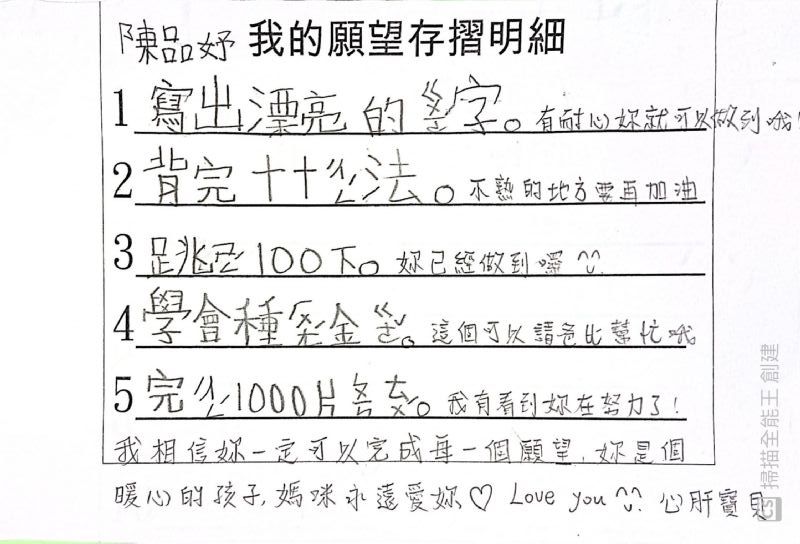 陳品妤 我的願望存摺明細
1 寫出漂亮的字。有耐心妳就可以做到哦!
2 背完十十ㄔㄥˊ法。不熟的地方要再加油
3 跳100下。妳已經做到囉^^
4 學會種金ㄍㄜˇ。這個可以請爸比幫忙哦
5 完ㄔㄥˊ1000片。我有看到妳在努力了!
我相信妳一定可以完成每一個願望,妳是個
暖心的孩子,媽咪永遠愛妳♡ Love you ^^ 心肝寶貝
CS 掃描全能王 創建